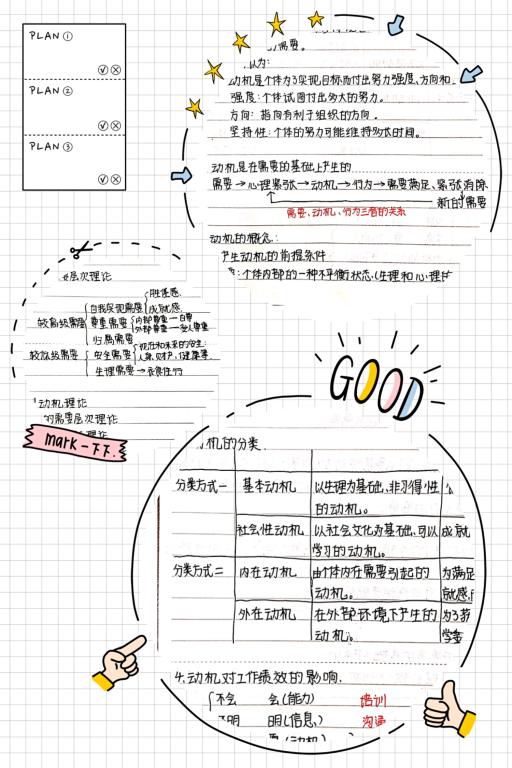 PLAN ①
PLAN ②
PLAN ③
需要。
认为:
动机是个体为了实现目标而付出努力强度、方向和
强度:个体试图付出多大的努力。
方向:指向有利于组织的方向。
坚持性:个体的努力可能维持多长时间。
动机是在需要的基础上产生的
需要→心理紧张→动机→行为→需要满足、紧张消除
新的需要
需要、动机、行为三者的关系
动机的概念:
产生动机的前提条件
个体内部的一种不平衡状态(生理和心理
层次理论
较高级需要
自我实现需要
胜任感
成就感
尊重需要
内部尊重—自尊
外部尊重—他人尊重
归属需要
较低级需要
安全需要
现在和未来的
人身、财产、健康等
生理需要→衣食住行
动机理论
的需要层次理论
mark一下下.
GOOD
机的分类
分类方式一 基本动机 以生理为基础、非习得性的动机。
社会性动机 以社会文化为基础、可以学习的动机。 成就
分类方式二 内在动机 由个体内在需要引起的动机。 为满足 就感
外在动机 在外部环境下产生的动机。 为了 学
4.动机对工作绩效的影响.
不会 会(能力) 培训
明 明(信息) 沟通